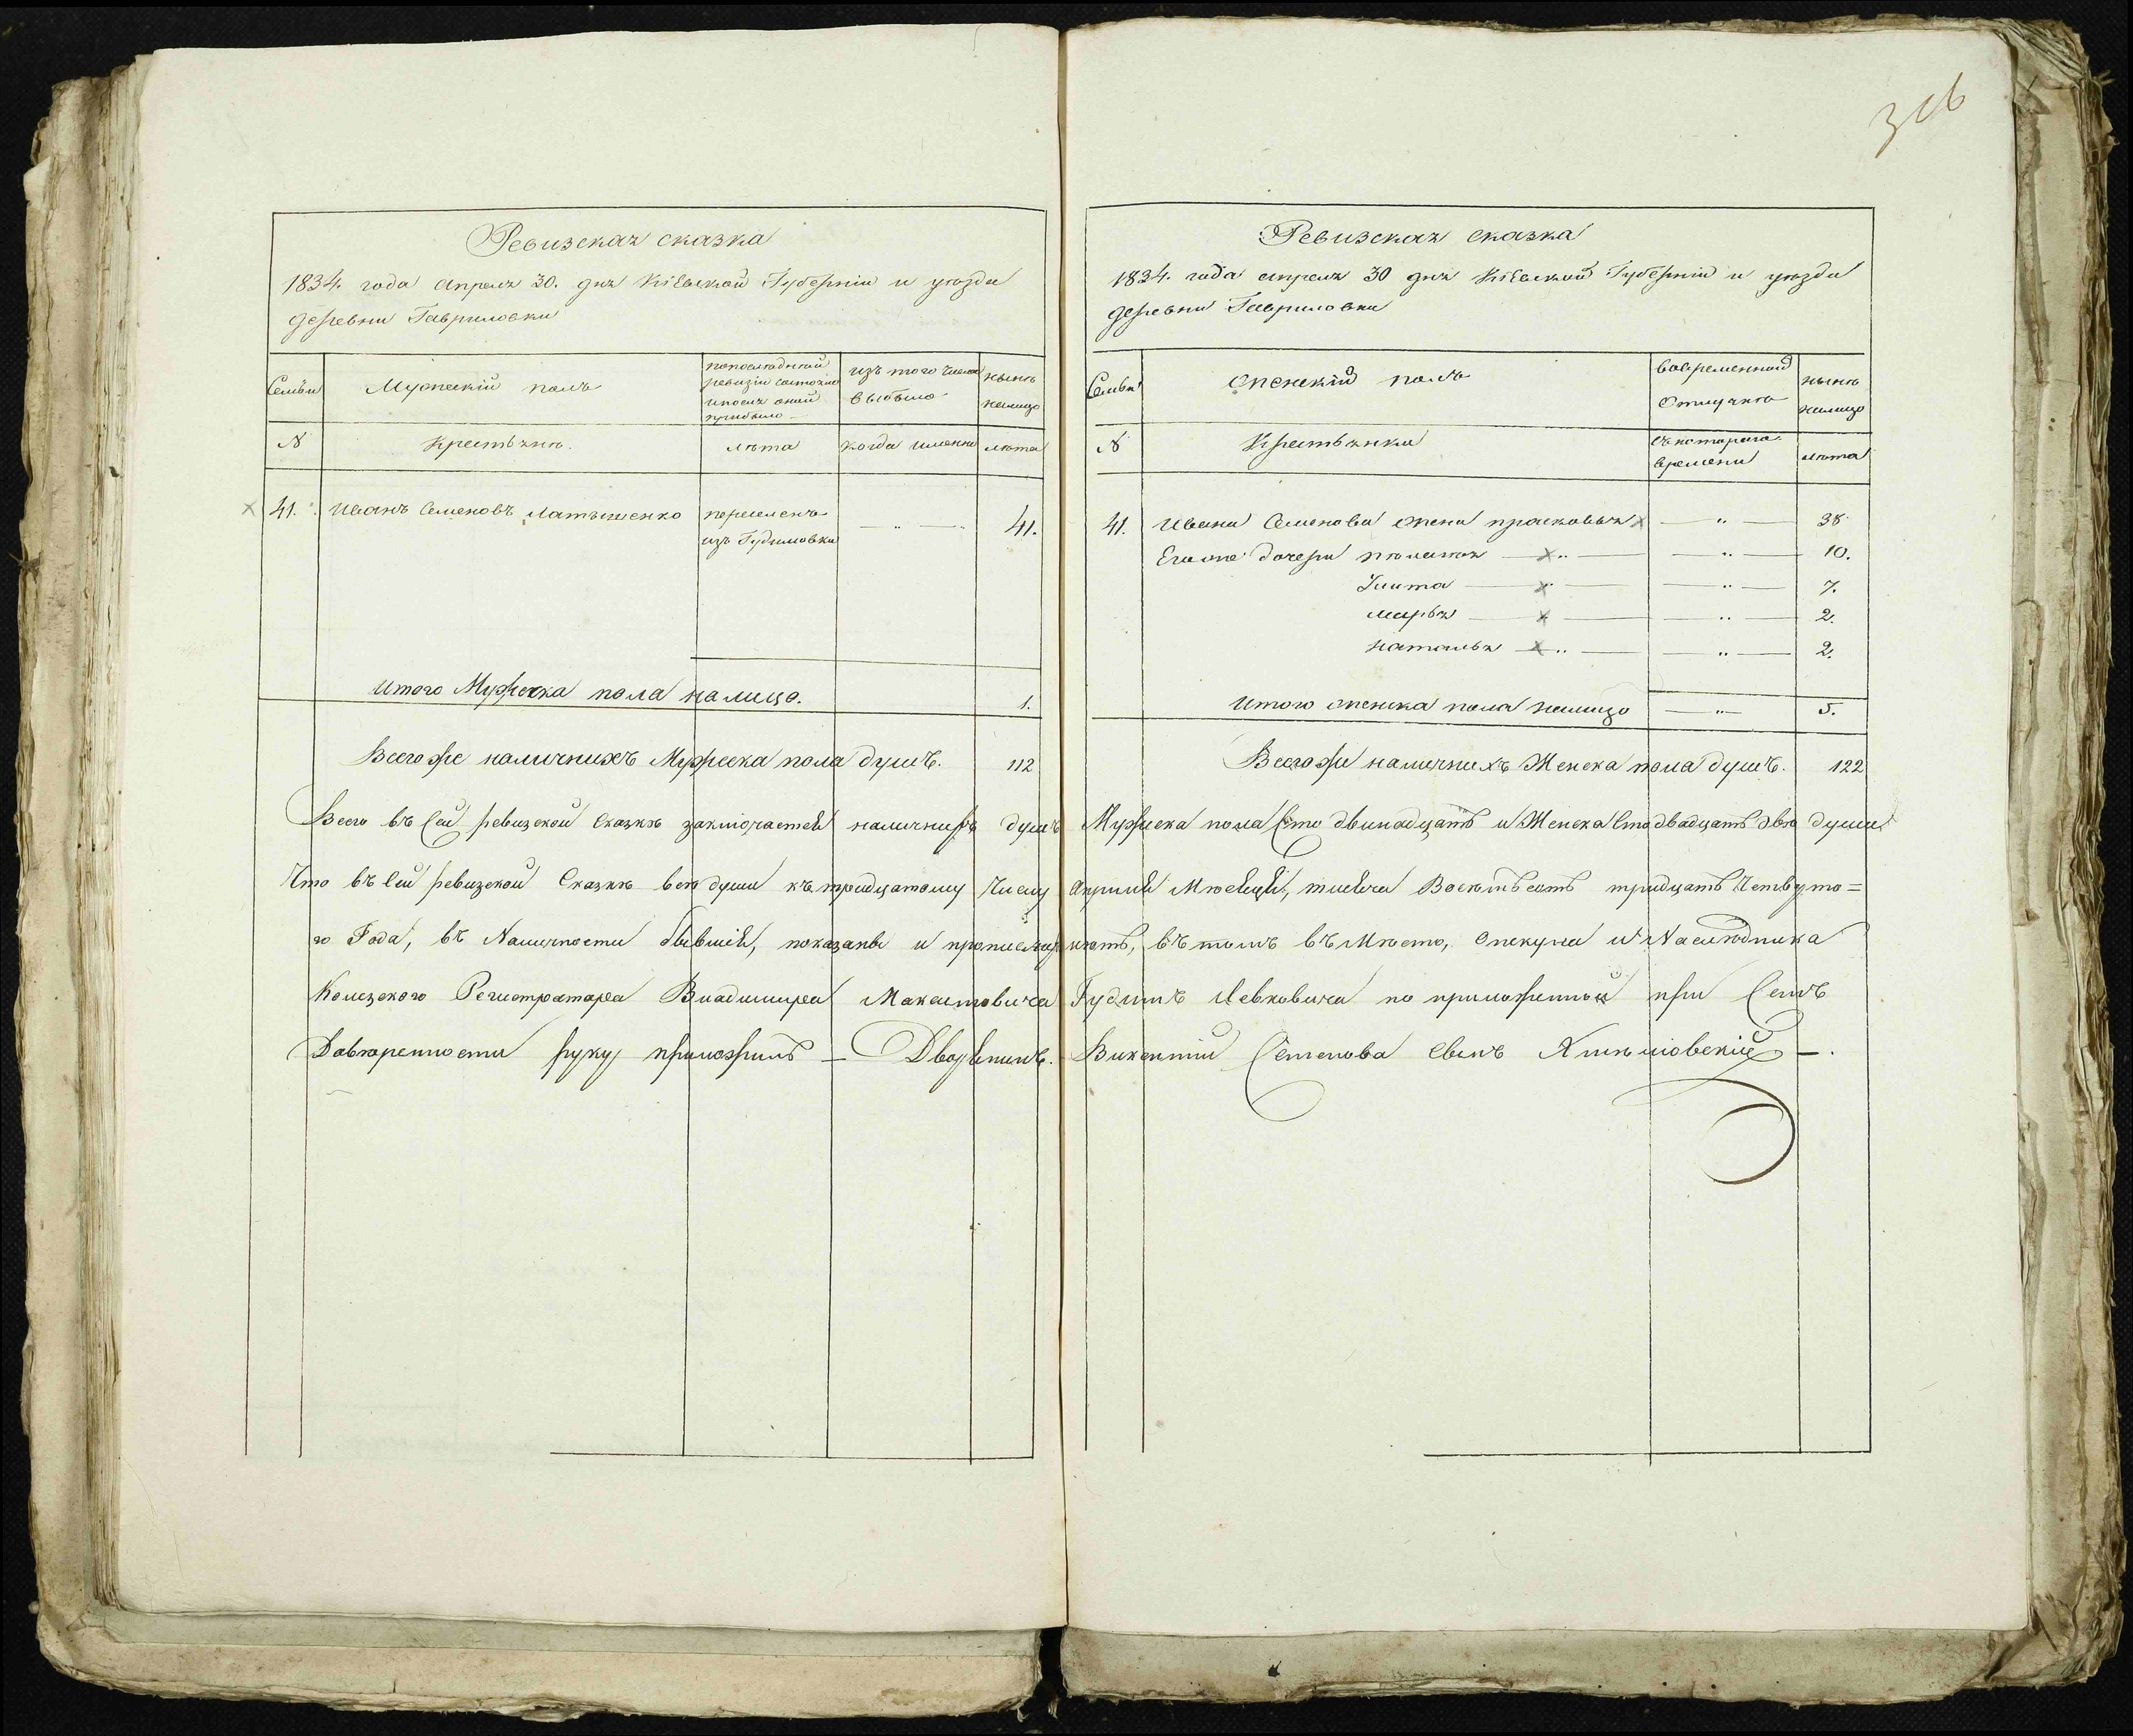 316
Ревизская сказка
1834. года апреля 30. дня Кіевской Губерніи и уезда
деревни Гавриловки
Семьи
Мужескій полъ
попоследней
ревизіи состояло
ипосле оной
прибыло
изъ того числа
выбыло
ныне
налицо
№
Крестьяне.
лета
когда именно
лета
41.
Иванъ Семеновъ Латышенко
переселенъ
изъ Гудимовки
41.
Итого Мужеска пола налицо.
1.
Всего же наличнихъ Мужеска пола душъ.
112
Ревизская сказка
1834. года апреля 30 дня Кіевской Губерніи и уезда
деревни Гавриловки
Семьи
женскій полъ
Вовременной
Отлучке
ныне
налицо
№
Крестьянки
съ котораго
времени
лета
41.
Ивана Семенова жена прасковья
38
Егоже дочери пелагея
10.
7.
марья
2.
наталья
2.
Итого женска пола налицо
5.
Всего же наличнихъ Женска пола душъ.
122
Всего въ сей ревизской сказкѣ заключается наличнихъ душъ Мужеска пола Сто двинадцать и Женска Сто двадцать две души.
Что въ сей ревизской Сказкѣ всѣ души къ тридцатому Числу Апреля Мѣсяця, тисяча Восемьсотъ тридцать Четверто=
го Года, въ Наличности бывшія, показаны и прописныхъ нетъ, въ томъ въ Место, Опекуна и Наследника
Колезского Регистратара Владимира Гудимъ Левковича по приложенной при Семъ
Доверенности руку приложилъ – Дворянинъ. Викентій Семенова сынъ